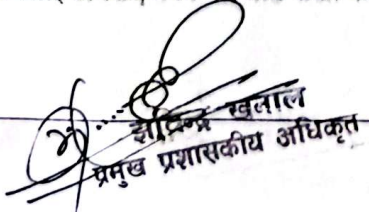 खनाल
प्रमुख प्रशासकीय अधिकृत